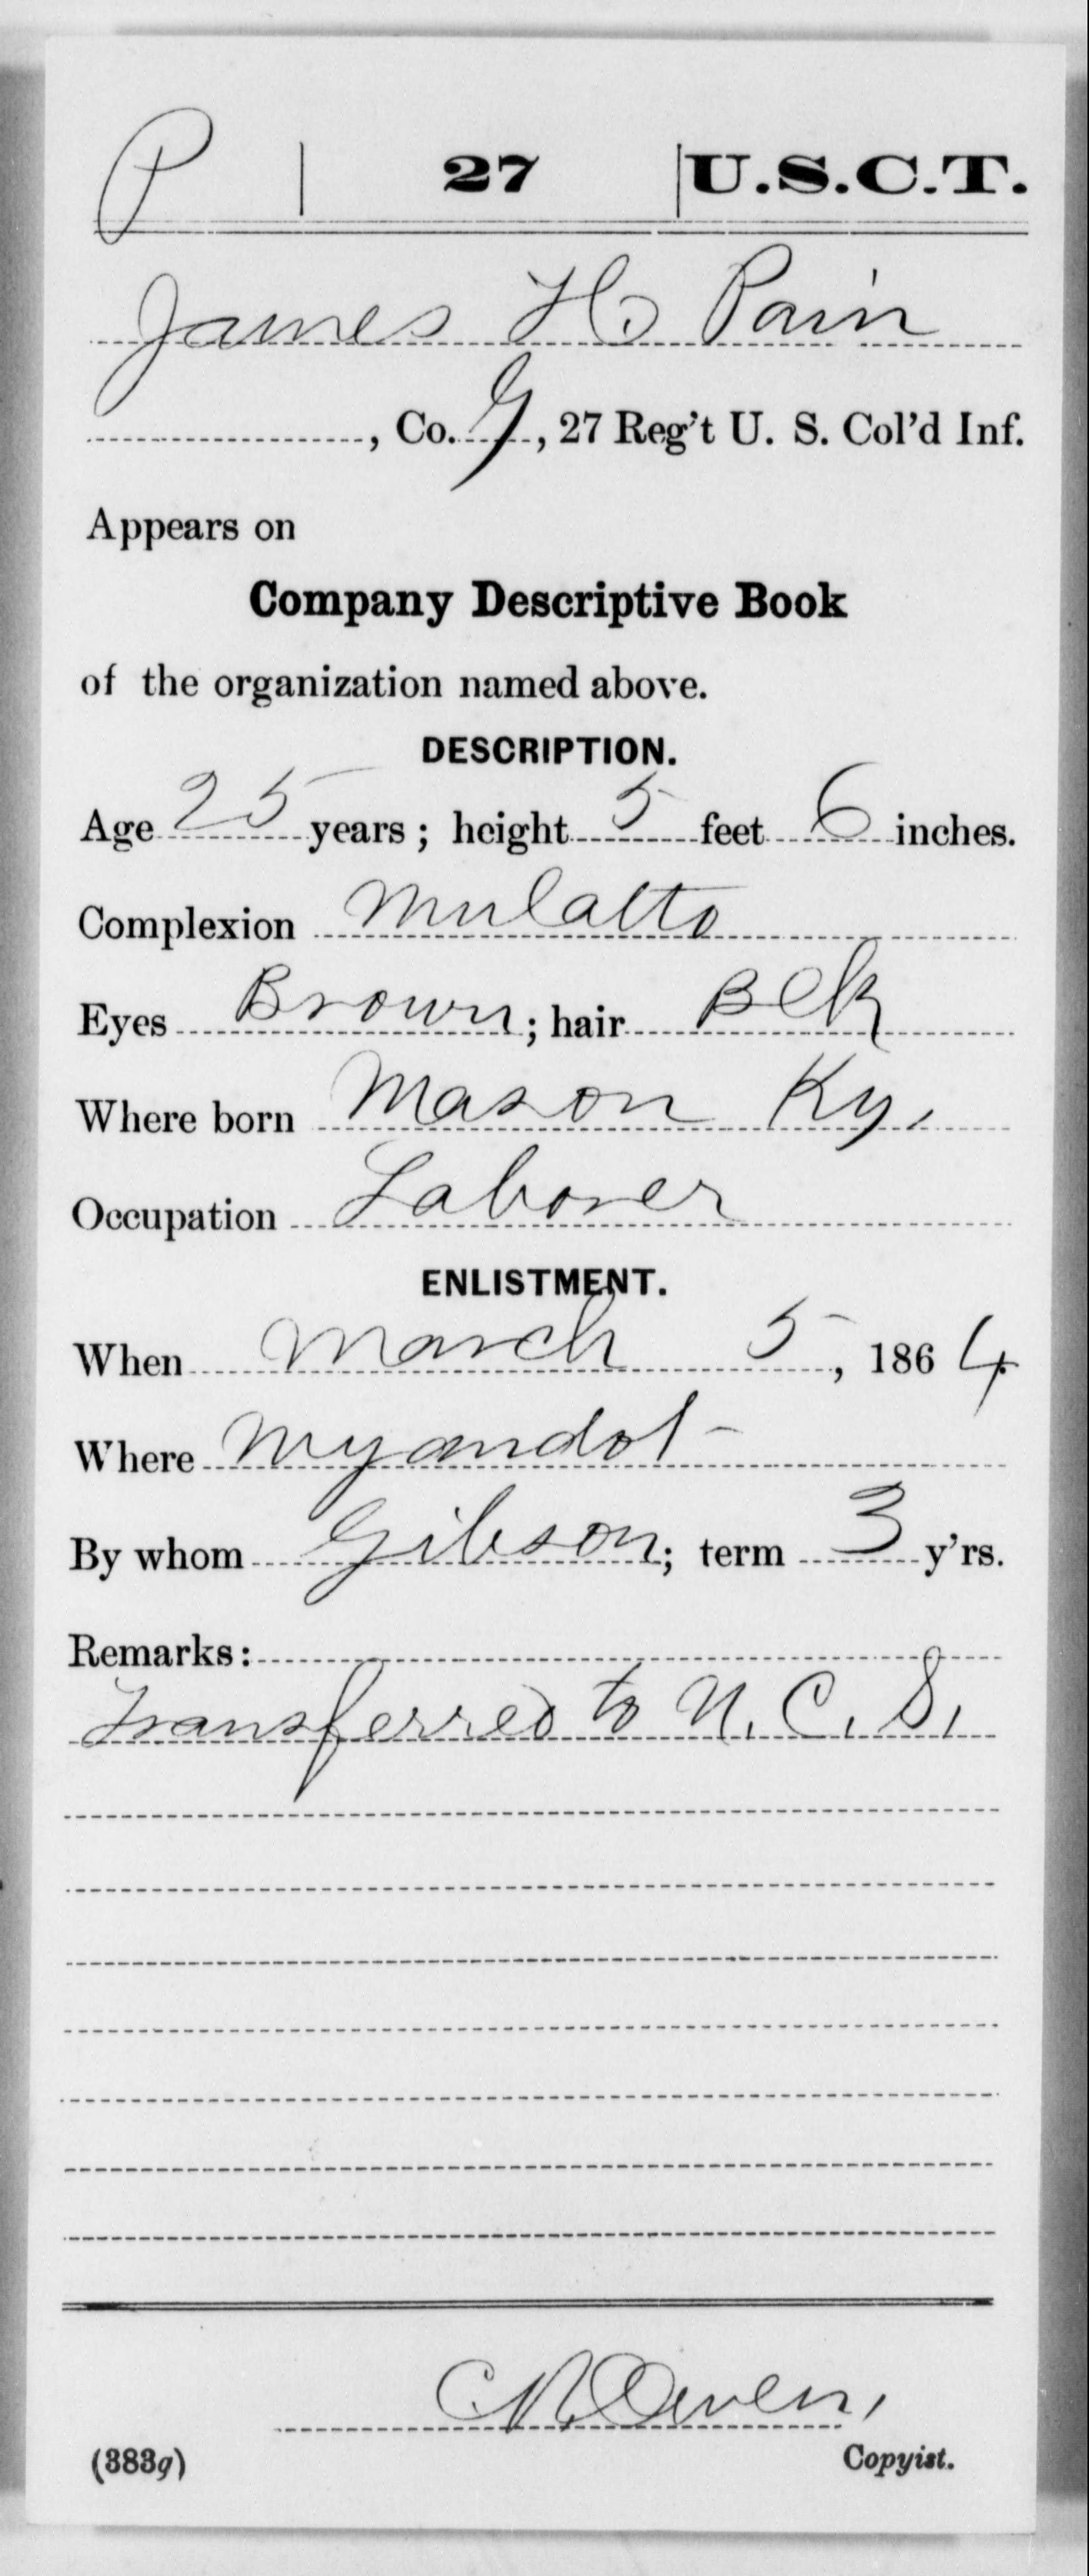 P | 27 | U.S.C.T.
James H. Pain
, Co. G, 27 Reg't U. S. Col'd Inf.
Appears on
Company Descriptive Book
of the organization named above.
DESCRIPTION.
Age 25 years; height 5 feet 6 inches.
Complexion Mulatto
Eyes Brown; hair Blk
Where born Mason Ky.
Occupation Laborer
ENLISTMENT.
When March 5, 1864
Where Wyandot
By whom Gibson; term 3 y'rs.
Remarks:
Transferred to N. C. S.
Owen,
(383g) Copyist.